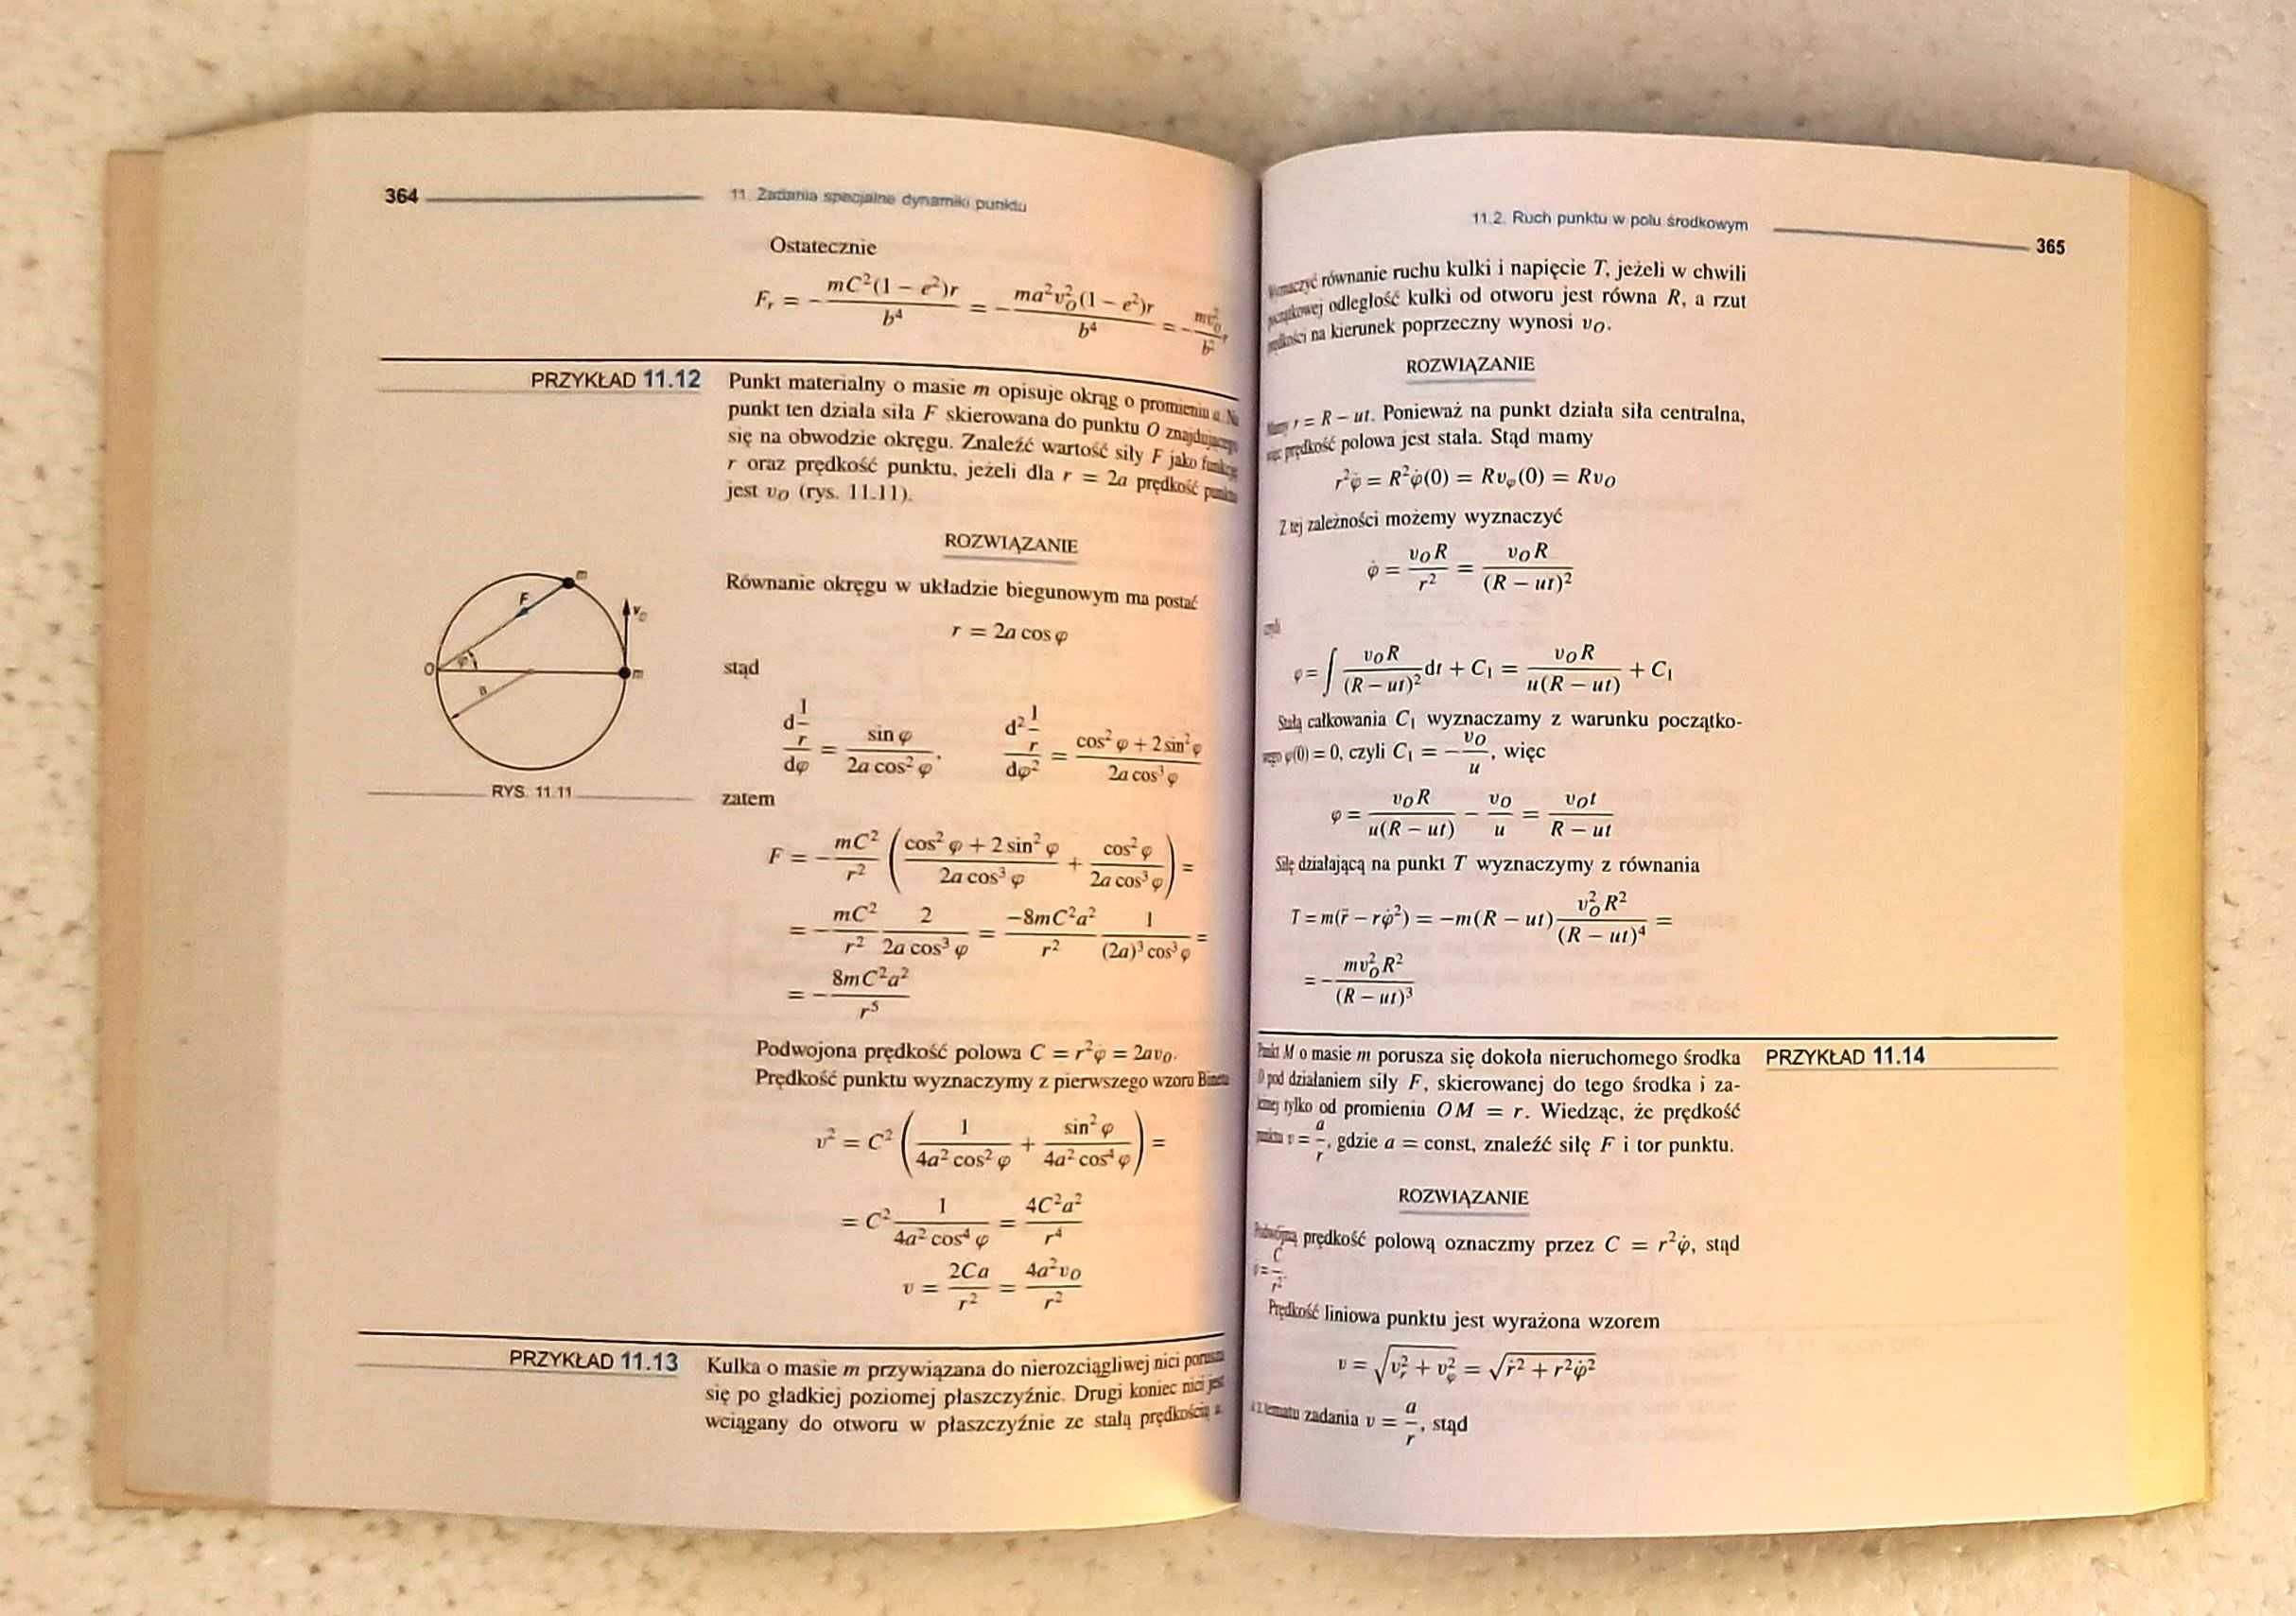 364
11. Zadania specjalne dynamiki punktu
Ostatecznie
F_r = − mC²(1 − e²)r / b⁴ = − ma²v_O²(1 − e²)r / b⁴ = − mv_O² / b² r
PRZYKŁAD 11.12
Punkt materialny o masie m opisuje okrąg o promieniu a. Na
punkt ten działa siła F skierowana do punktu O znajdującego
się na obwodzie okręgu. Znaleźć wartość siły F jako funkcję
r oraz prędkość punktu, jeżeli dla r = 2a prędkość punktu
jest v_O (rys. 11.11).
ROZWIĄZANIE
Równanie okręgu w układzie biegunowym ma postać
r = 2a cos φ
stąd
d(1/r) / dφ = sin φ / 2a cos² φ, d²(1/r) / dφ² = cos² φ + 2 sin² φ / 2a cos³ φ
zatem
F = − mC² / r² ( cos² φ + 2 sin² φ / 2a cos³ φ + cos² φ / 2a cos³ φ ) =
= − mC² / r² 2 / 2a cos³ φ = −8mC²a² / r² 1 / (2a)³ cos³ φ =
= − 8mC²a² / r⁵
m
F
v_O
O
φ
m
a
RYS. 11.11
Podwojona prędkość polowa C = r²φ̇ = 2av_O.
Prędkość punktu wyznaczymy z pierwszego wzoru Bineta
v² = C² ( 1 / 4a² cos² φ + sin² φ / 4a² cos⁴ φ ) =
= C² 1 / 4a² cos⁴ φ = 4C²a² / r⁴
v = 2Ca / r² = 4a²v_O / r²
PRZYKŁAD 11.13
Kulka o masie m przywiązana do nierozciągliwej nici porusza
się po gładkiej poziomej płaszczyźnie. Drugi koniec nici jest
wciągany do otworu w płaszczyźnie ze stałą prędkością u.
11.2. Ruch punktu w polu środkowym
365
Wyznaczyć równanie ruchu kulki i napięcie T, jeżeli w chwili
początkowej odległość kulki od otworu jest równa R, a rzut
prędkości na kierunek poprzeczny wynosi v_O.
ROZWIĄZANIE
Mamy r = R − ut. Ponieważ na punkt działa siła centralna,
więc prędkość polowa jest stała. Stąd mamy
r²φ̇ = R²φ̇(0) = Rv_φ(0) = Rv_O
Z tej zależności możemy wyznaczyć
φ̇ = v_O R / r² = v_O R / (R − ut)²
czyli
φ = ∫ v_O R / (R − ut)² dt + C₁ = v_O R / u(R − ut) + C₁
Stałą całkowania C₁ wyznaczamy z warunku początko-
wego φ(0) = 0, czyli C₁ = − v_O / u, więc
φ = v_O R / u(R − ut) − v_O / u = v_O t / R − ut
Siłę działającą na punkt T wyznaczymy z równania
T = m(r̈ − rφ̇²) = −m(R − ut) v_O² R² / (R − ut)⁴ =
= − mv_O² R² / (R − ut)³
PRZYKŁAD 11.14
Punkt M o masie m porusza się dokoła nieruchomego środka
O pod działaniem siły F, skierowanej do tego środka i za-
leżnej tylko od promienia OM = r. Wiedząc, że prędkość
punktu v = a / r, gdzie a = const, znaleźć siłę F i tor punktu.
ROZWIĄZANIE
Podwójną prędkość polową oznaczmy przez C = r²φ̇, stąd
φ̇ = C / r².
Prędkość liniowa punktu jest wyrażona wzorem
v = √(v_r² + v_φ²) = √(ṙ² + r²φ̇²)
a z tematu zadania v = a / r, stąd